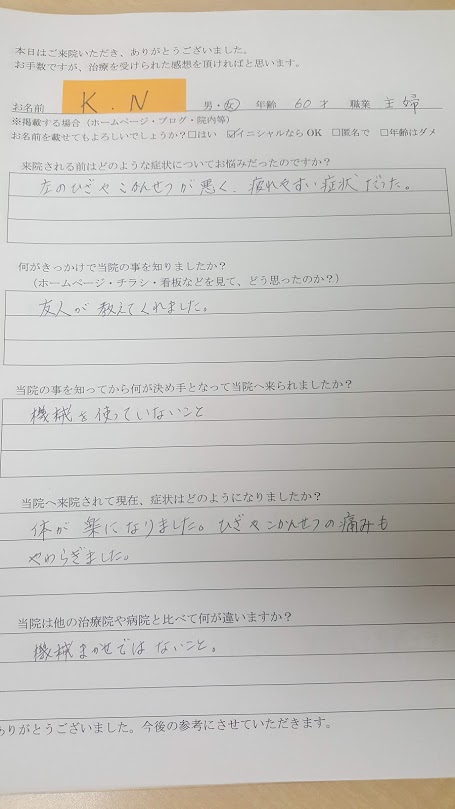 本日はご来院いただき、ありがとうございました。
お手数ですが、治療を受けられた感想を頂ければと思います。
お名前 K.N 男・女 年齢 60才 職業 主婦
※掲載する場合（ホームページ・ブログ・院内等）
お名前を載せてもよろしいでしょうか？□はい ☑イニシャルならOK □匿名で □年齢はダメ
来院される前はどのような症状についてお悩みだったのですか？
左のひざやこかんせつが悪く、疲れやすい症状だった。
何がきっかけで当院の事を知りましたか？
（ホームページ・チラシ・看板などを見て、どう思ったのか？）
友人が教えてくれました。
当院の事を知ってから何が決め手となって当院へ来られましたか？
機械を使っていないこと
当院へ来院されて現在、症状はどのようになりましたか？
体が楽になりました。ひざやこかんせつの痛みも
やわらぎました。
当院は他の治療院や病院と比べて何が違いますか？
機械まかせではないこと。
ありがとうございました。今後の参考にさせていただきます。